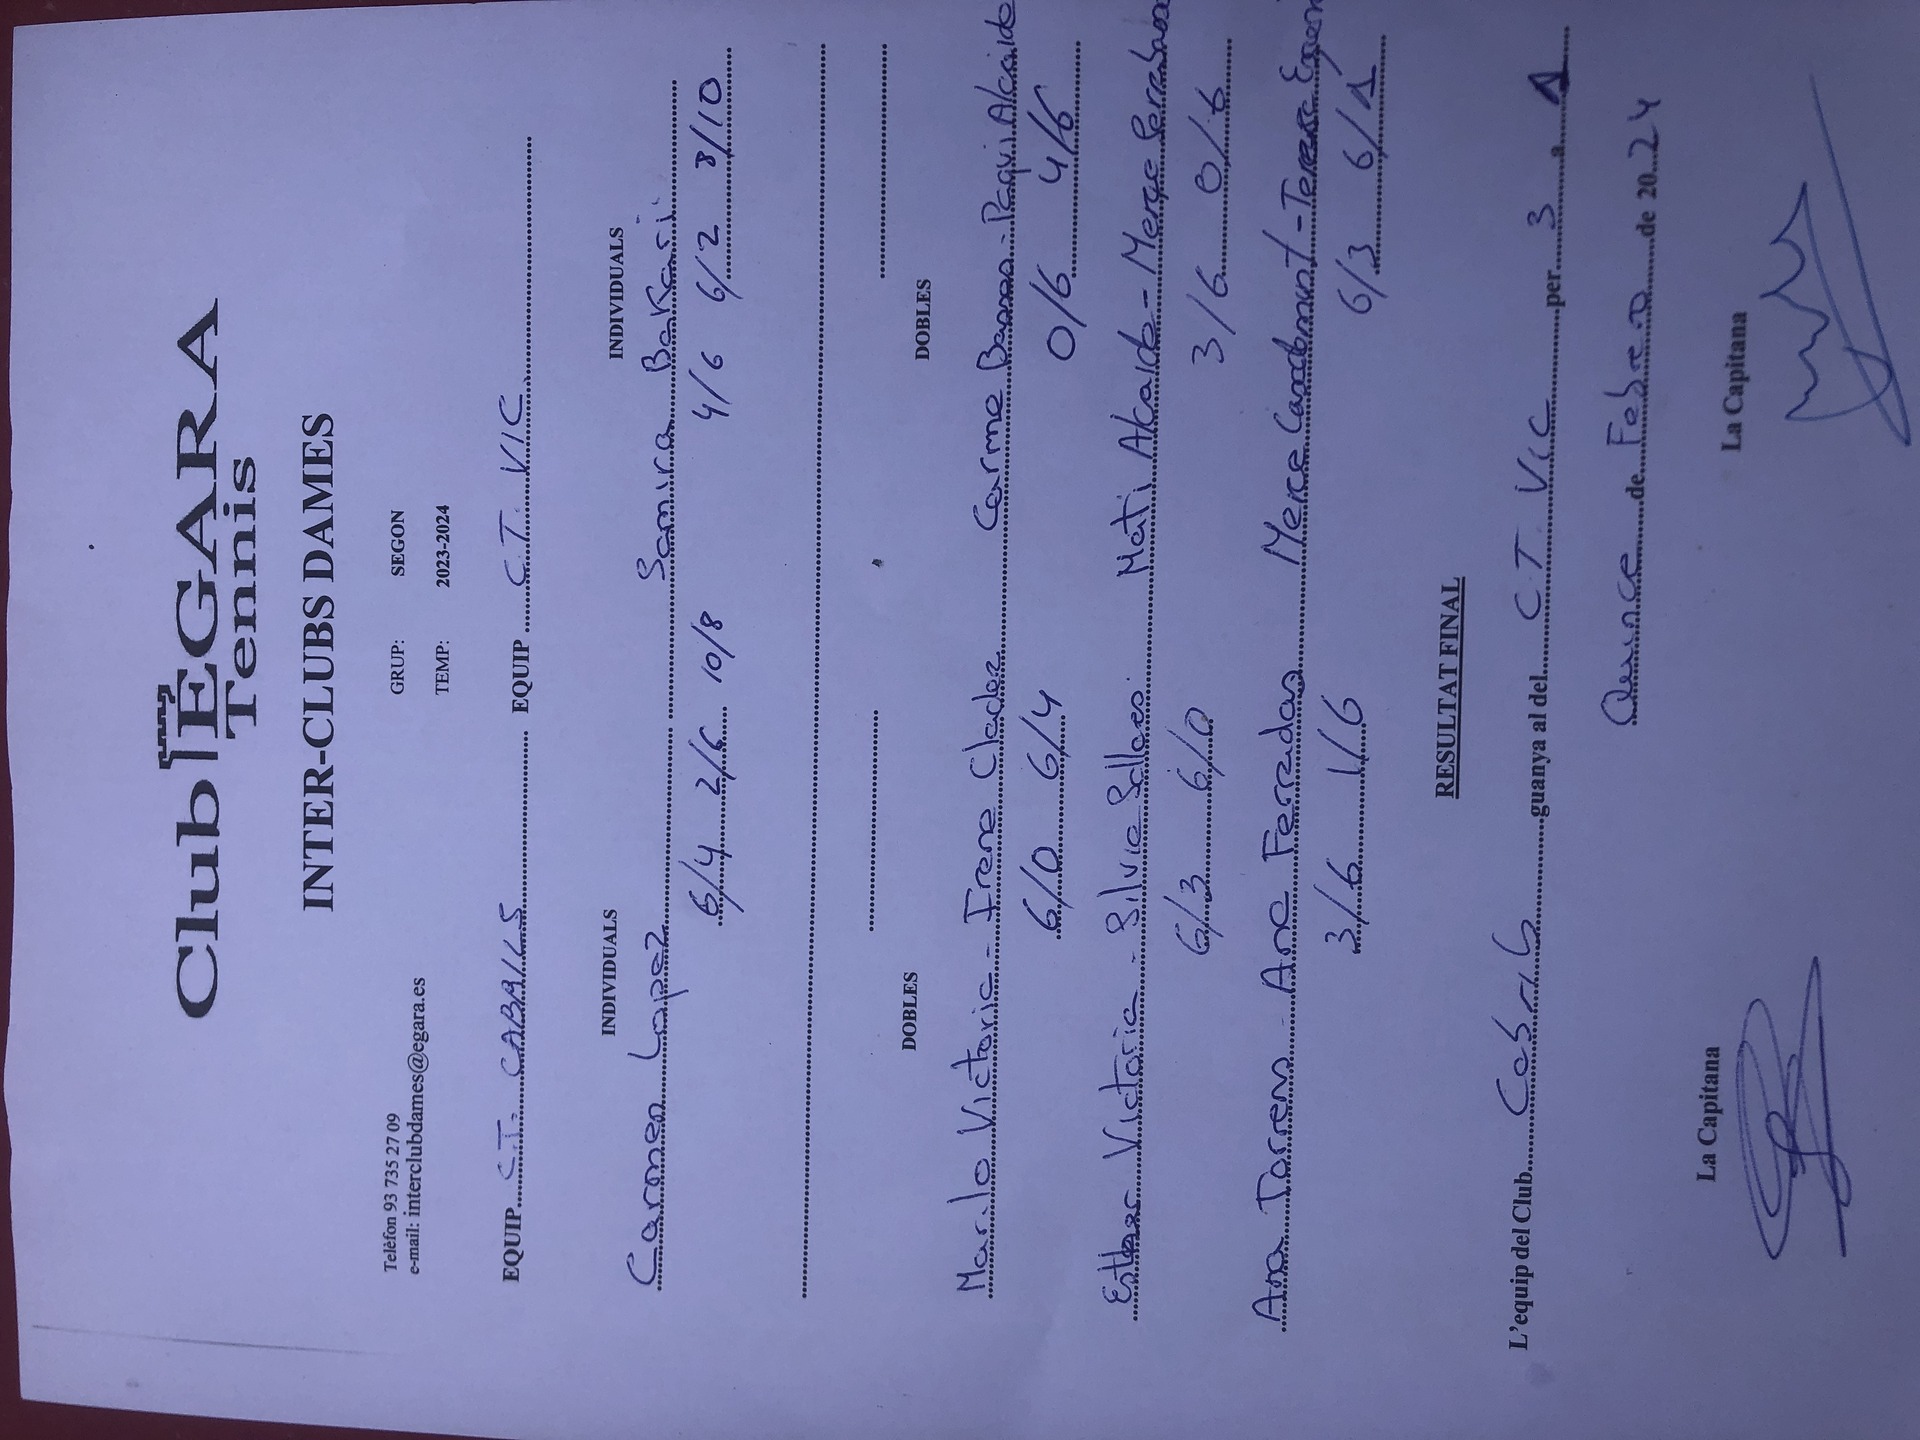 Club EGARA
Tennis
INTER-CLUBS DAMES
Telèfon 93 735 27 09 GRUP: SEGON
e-mail: interclubdames@egara.es TEMP: 2023-2024
EQUIP C.T. CABRILS EQUIP C.T. VIC
INDIVIDUALS INDIVIDUALS
Carmen Lopez Samira Bakari
6/4 2/6 10/8 4/6 6/2 8/10
DOBLES DOBLES
Marilo Victoria - Irene Clader Carme - Paqui Alcaide
6/0 6/4 0/6 4/6
Esther Victoria - Silvia Mati Alcaide - Merce
6/3 6/0 3/6 0/6
Ana Torrens - Ana Ferradas Merce - Teresa
3/6 1/6 6/3 6/1
RESULTAT FINAL
L'equip del Club Cabrils guanya al del C.T. Vic per 3 a 1
Quince de Febrero de 2024
La Capitana La Capitana